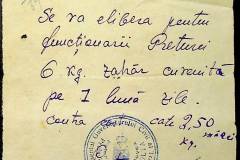 Se va elibera pentru
funcționarii Preturei
6 kg. zahăr cuvenită
pe 1 lună zile.
contra cate 2,50
mărci
kg.